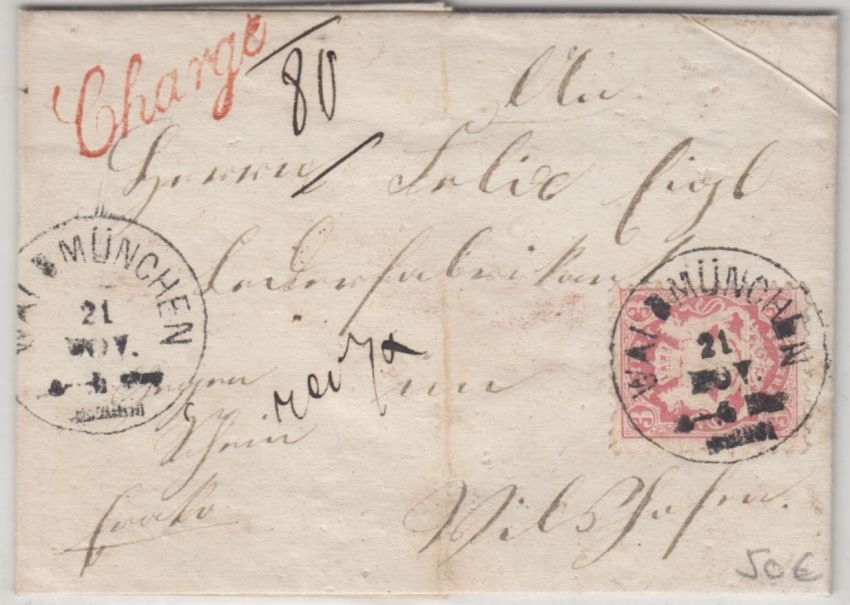 Chargé
80
An
Herrn Felix Eigl
Lederfabrikant
in
Vilshofen.
gegen
Schein
franko
WALDMÜNCHEN
21
NOV.
WALDMÜNCHEN
21
NOV.
50€